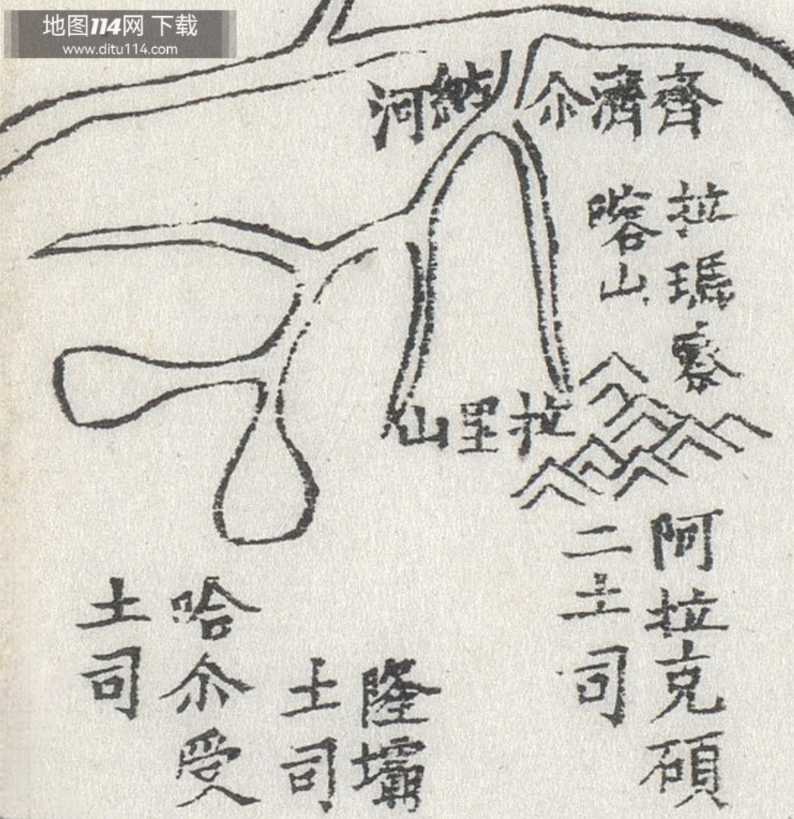 地图114网 下载
www.ditu114.com
齊濟尒納河
拉瑪察
喀山
拉里山
阿拉克碩
二土司
隆壩
土司
哈尒受
土司